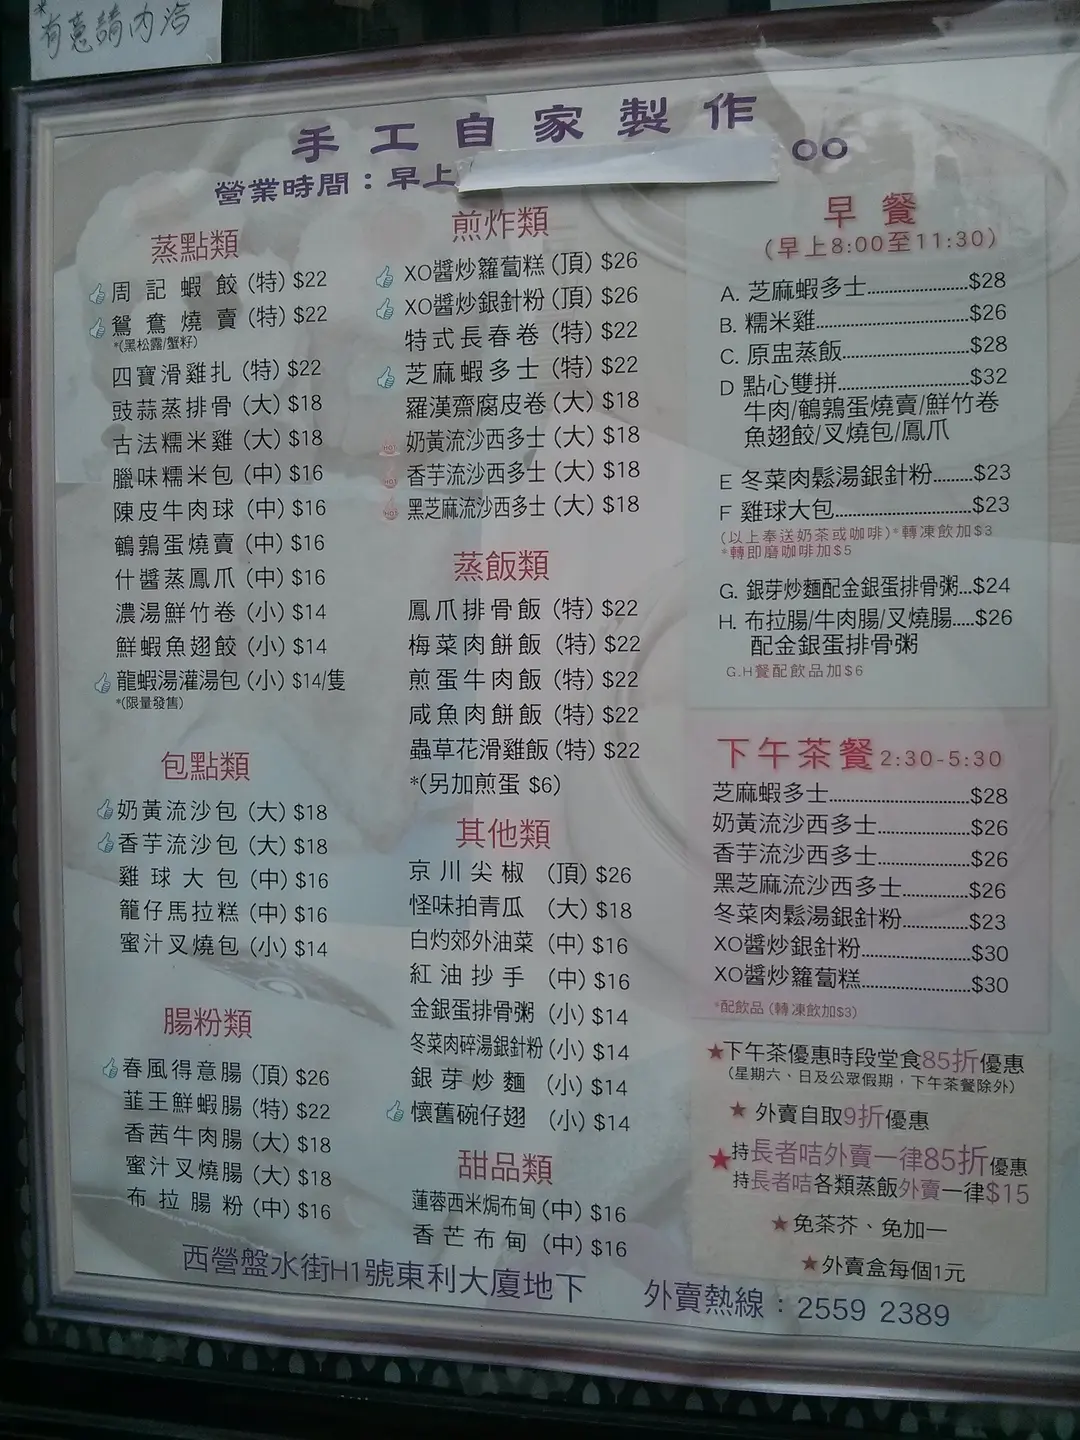 *有意請內洽
手工自家製作
營業時間：早上
蒸點類
周記蝦餃 (特) $22
鴛鴦燒賣 (特) $22
*(黑松露/蟹籽)
四寶滑雞扎 (特) $22
豉蒜蒸排骨 (大) $18
古法糯米雞 (大) $18
臘味糯米包 (中) $16
陳皮牛肉球 (中) $16
鵪鶉蛋燒賣 (中) $16
什醬蒸鳳爪 (中) $16
濃湯鮮竹卷 (小) $14
鮮蝦魚翅餃 (小) $14
龍蝦湯灌湯包 (小) $14/隻
*(限量發售)
包點類
奶黃流沙包 (大) $18
香芋流沙包 (大) $18
雞球大包 (中) $16
籠仔馬拉糕 (中) $16
蜜汁叉燒包 (小) $14
腸粉類
春風得意腸 (頂) $26
韮王鮮蝦腸 (特) $22
香茜牛肉腸 (大) $18
蜜汁叉燒腸 (大) $18
布拉腸粉 (中) $16
煎炸類
XO醬炒籮蔔糕 (頂) $26
XO醬炒銀針粉 (頂) $26
特式長春卷 (特) $22
芝麻蝦多士 (特) $22
羅漢齋腐皮卷 (大) $18
奶黃流沙西多士 (大) $18
香芋流沙西多士 (大) $18
黑芝麻流沙西多士 (大) $18
蒸飯類
鳳爪排骨飯 (特) $22
梅菜肉餅飯 (特) $22
煎蛋牛肉飯 (特) $22
咸魚肉餅飯 (特) $22
蟲草花滑雞飯 (特) $22
*(另加煎蛋 $6)
其他類
京川尖椒 (頂) $26
怪味拍青瓜 (大) $18
白灼郊外油菜 (中) $16
紅油抄手 (中) $16
金銀蛋排骨粥 (小) $14
冬菜肉碎湯銀針粉 (小) $14
銀芽炒麵 (小) $14
懷舊碗仔翅 (小) $14
甜品類
蓮蓉西米焗布甸 (中) $16
香芒布甸 (中) $16
早餐
(早上8:00至11:30)
A. 芝麻蝦多士..................$28
B. 糯米雞..........................$26
C. 原盅蒸飯......................$28
D 點心雙拼......................$32
牛肉/鵪鶉蛋燒賣/鮮竹卷
魚翅餃/叉燒包/鳳爪
E 冬菜肉鬆湯銀針粉.........$23
F 雞球大包.......................$23
(以上奉送奶茶或咖啡)*轉凍飲加$3
*轉即磨咖啡加$5
G. 銀芽炒麵配金銀蛋排骨粥...$24
H. 布拉腸/牛肉腸/叉燒腸.....$26
配金銀蛋排骨粥
G.H餐配飲品加$6
下午茶餐 2:30-5:30
芝麻蝦多士.......................$28
奶黃流沙西多士................$26
香芋流沙西多士................$26
黑芝麻流沙西多士.............$26
冬菜肉鬆湯銀針粉.............$23
XO醬炒銀針粉...................$30
XO醬炒籮蔔糕...................$30
*配飲品 (轉凍飲加$3)
★下午茶優惠時段堂食85折優惠
(星期六、日及公眾假期，下午茶餐除外)
★ 外賣自取9折優惠
★持長者咭外賣一律85折優惠
持長者咭各類蒸飯外賣一律$15
★免茶芥、免加一
★外賣盒每個1元
西營盤水街H1號東利大廈地下 外賣熱線：2559 2389